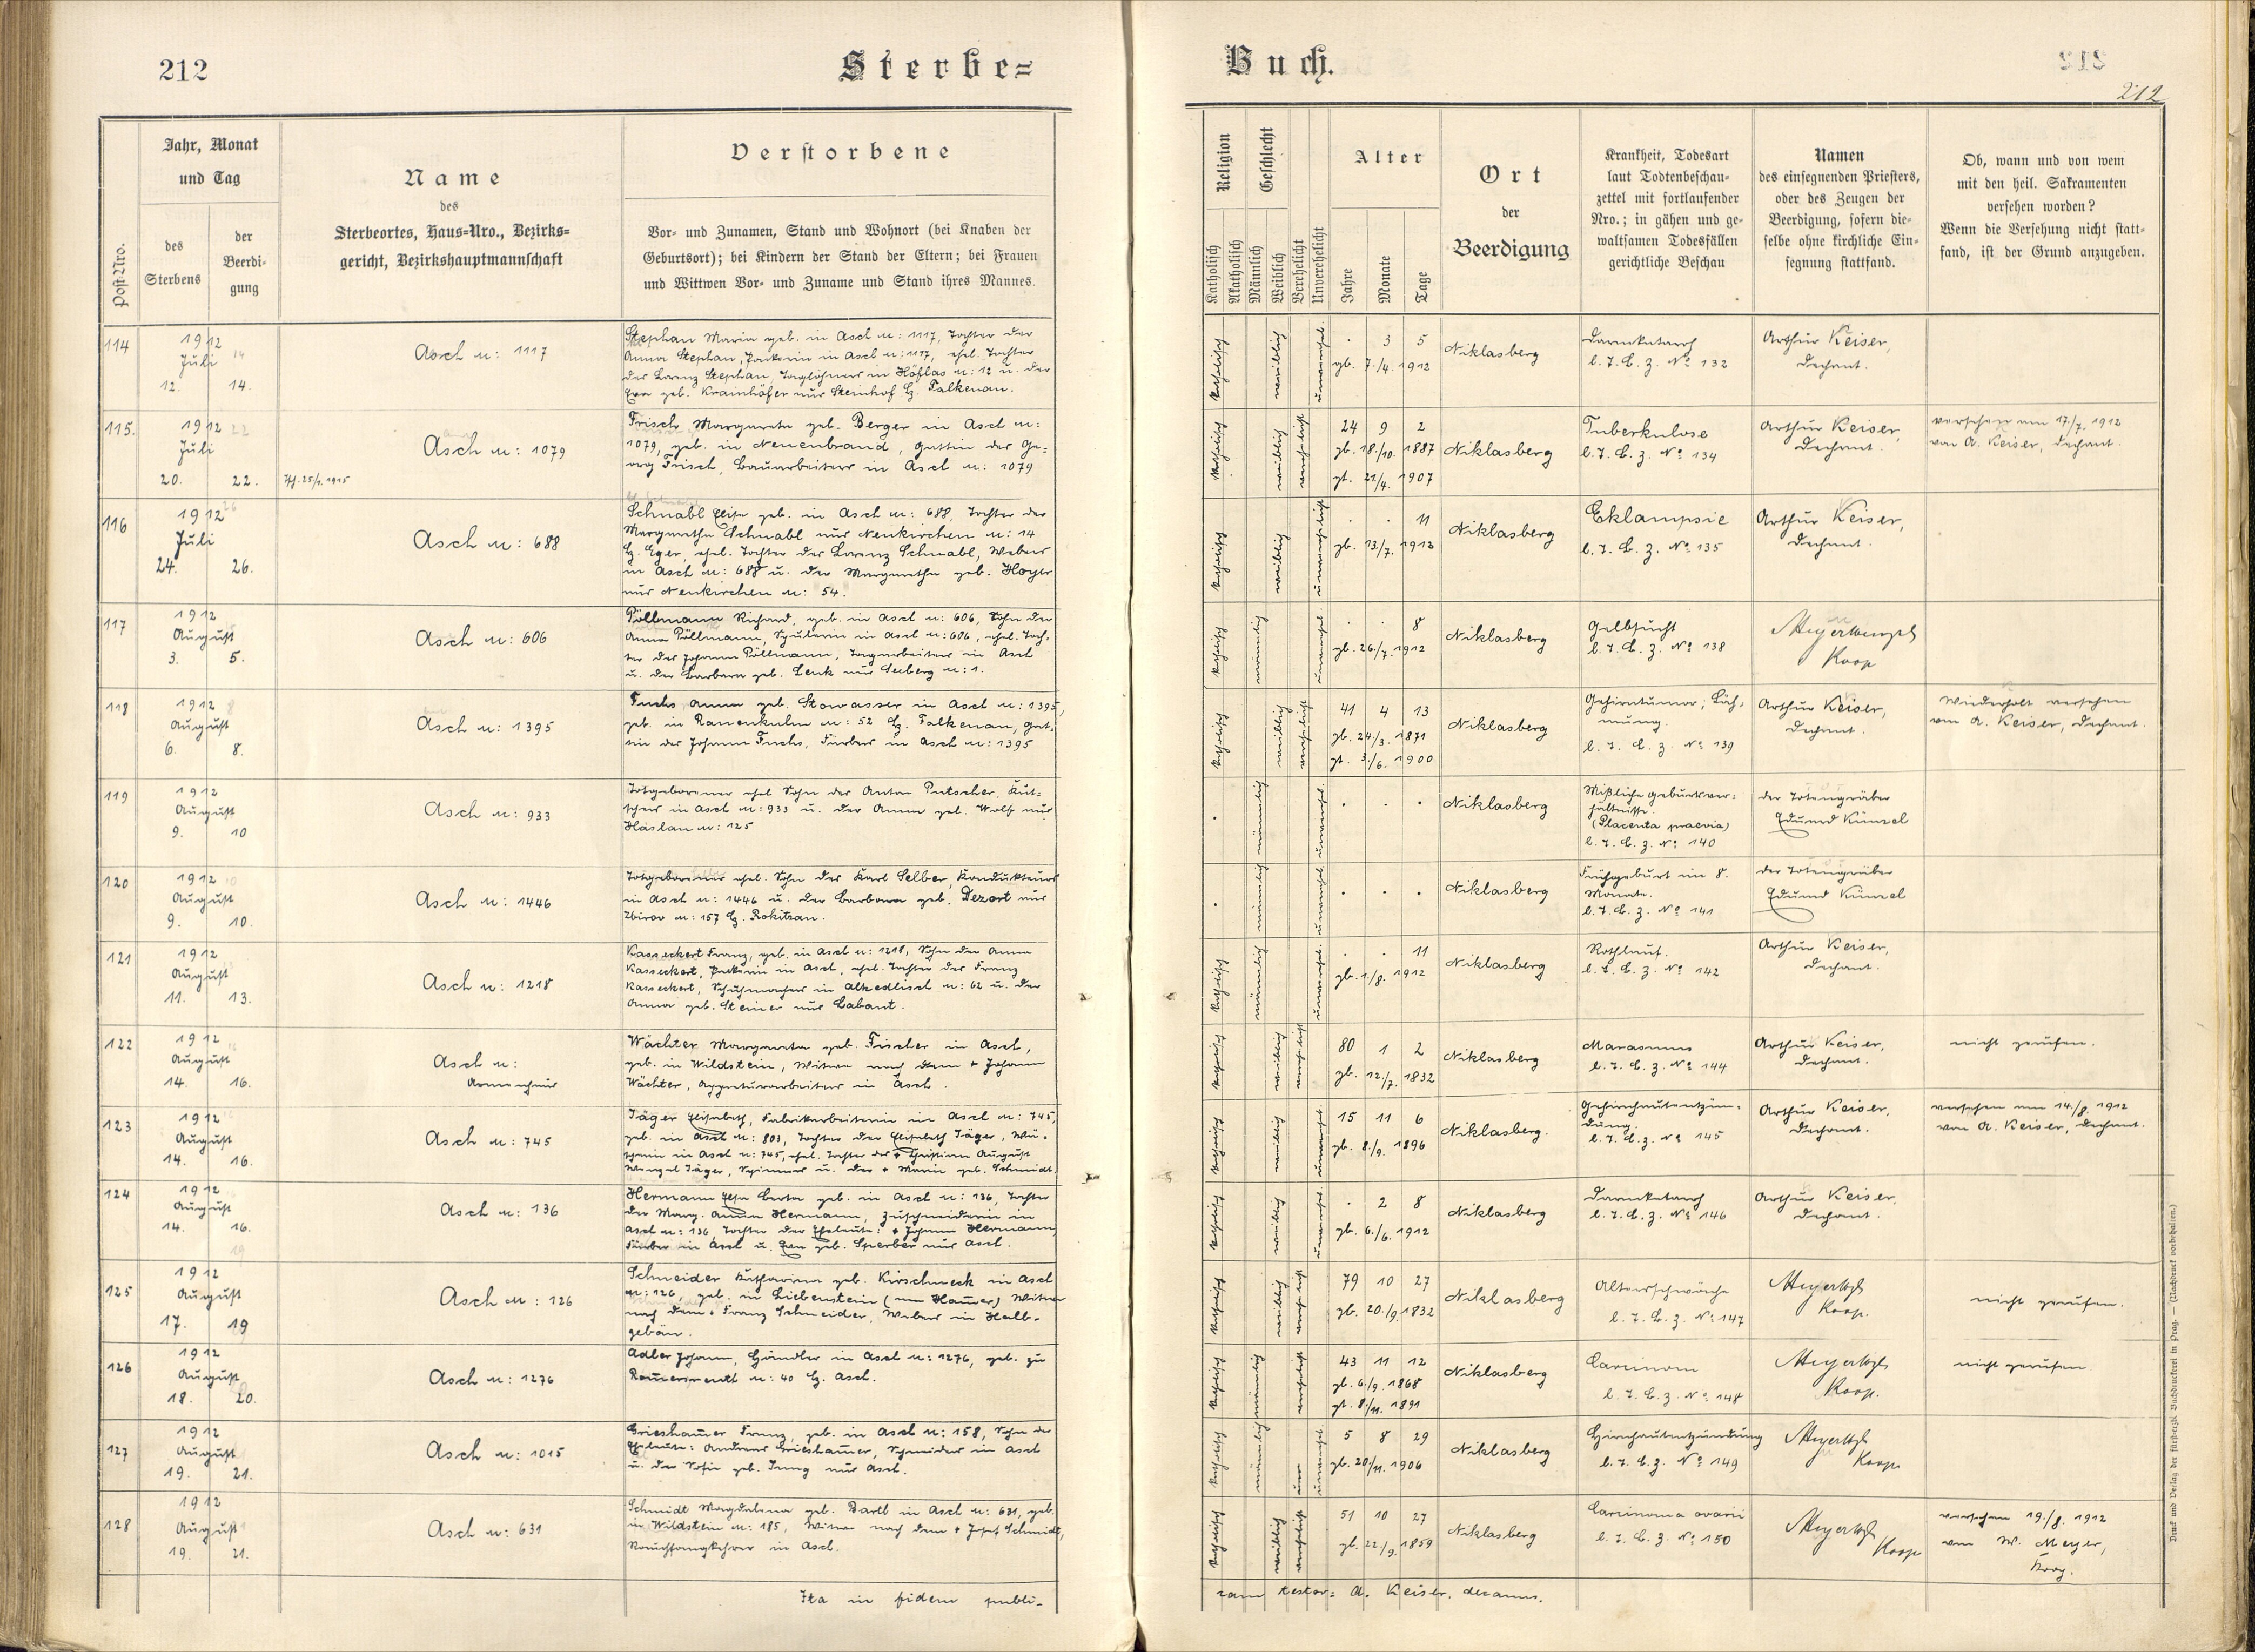 212
Sterbe=
Post-Nro.
Jahr, Monat
und Tag
des
Sterbens
der
Beerdi-
gung
Name
des
Sterbeortes, Haus-Nro., Bezirks-
gericht, Bezirkshauptmannschaft
Verstorbene
Vor- und Zunamen, Stand und Wohnort (bei Knaben der
Geburtsort); bei Kindern der Stand der Eltern; bei Frauen
und Wittwen Vor- und Zuname und Stand ihres Mannes.
114
1912
Juli
12. 14.
Asch n: 1117
Stephan Maria geb. in Asch n: 1117, Tochter der
Anna Stephan, in Asch n: 1117, ehel. Tochter
des Lorenz Stephan, Taglöhners in Höflas n: 12 u. der
Eva geb. Kramhöfer aus Steinhof Bz. Falkenau.
115.
1912
Juli
20. 22.
Asch n: 1079
Frisch Margareta geb. Berger in Asch n:
1079, geb. in Neuenbrand, Gattin des Ge-
org Frisch, Bauarbeiters in Asch n: 1079
116
1912
Juli
24. 26.
Asch n: 688
Schnabl Elise geb. in Asch n: 688, Tochter der
Margaretha Schnabl aus Neukirchen n: 14
Bz. Eger, ehel. Tochter des Lorenz Schnabl, Webers
in Asch n: 688 u. der Margaretha geb. Hoyer
aus Neukirchen n: 54.
117
1912
August
3. 5.
Asch n: 606
Pöllmann Richard, geb. in Asch n: 606, Sohn der
Anna Pöllmann, Spulerin in Asch n: 606, ehel. Toch-
ter des Johann Pöllmann, Tagarbeiters in Asch
u. der Barbara geb. Lenk aus Seeberg n: 1.
118
1912
August
6. 8.
Asch n: 1395
Fuchs Anna geb. Stowasser in Asch n: 1395,
geb. in Ranenkulm n: 52 Bz. Falkenau, Gat-
tin des Johann Fuchs, Färbers in Asch n: 1395
119
1912
August
9. 10
Asch n: 933
Totgeborener ehel. Sohn des Anton Putscher, Kut-
schers in Asch n: 933 u. der Anna geb. Wolf aus
Haslau n: 125
120
1912
August
9. 10.
Asch n: 1446
Totgeborener ehel. Sohn des Karl Selber, Kondukteurs
in Asch n: 1446 u. der Barbara geb. Dezort aus
Zbirov n: 157 Bz. Rokitzan.
121
1912
August
11. 13.
Asch n: 1218
Kasseckert Franz, geb. in Asch n: 1218, Sohn der Anna
Kasseckert, in Asch, ehel. Tochter des Franz
Kasseckert, Schuhmachers in Altzedlisch n: 62 u. der
Anna geb. Steiner aus Labant.
122
1912
August
14. 16.
Asch n:
Armenhaus
Wächter Margareta geb. Fischer in Asch,
geb. in Wildstein, Witwe nach dem + Johann
Wächter, Appreturarbeiters in Asch.
123
1912
August
14. 16.
Asch n: 745
Jäger Elisabeth, Fabrikarbeiterin in Asch n: 745,
geb. in Asch n: 803, Tochter der Elisabeth Jäger, Wä-
scherin in Asch n: 745, ehel. Tochter des + Christian August
Wenzel Jäger, Spinners u. der + Maria geb. Schmidt.
124
1912
August
14. 16.
Asch n: 136
Hermann Elsa Berta geb. in Asch n: 136, Tochter
der Marg. Anna Hermann, Zuschneiderin in
Asch n: 136, Tochter der Eheleute: + Johann Hermann,
Färber in Asch u. Eva geb. Sperber aus Asch.
125
1912
August
17. 19
Asch n: 126
Schneider Katharina geb. Kirschneck in Asch
n: 126, geb. in Liebenstein Witwe
nach dem + Franz Schneider, Weber in Halb-
gebäu.
126
1912
August
18. 20.
Asch n: 1276
Adler Johann, Händler in Asch n: 1276, geb. zu
Romersreuth n: 40 Bz. Asch.
127
1912
August
19. 21.
Asch n: 1015
Grieshammer Franz, geb. in Asch n: 158, Sohn der
Eheleute: Andreas Grieshammer, Schneiders in Asch
u. der Sofie geb. Jung aus Asch.
128
1912
August
19. 21.
Asch n: 631
Schmidt Magdalena geb. Bartl in Asch n: 631, geb.
in Wildstein n: 185, Witwe nach dem + Josef Schmidt,
Rauchfangkehrer in Asch.
Ita in fidem publi-
Buch.
212
Religion
Katholisch
Akatholisch
Geschlecht
Männlich
Weiblich
Verehelicht
Unverehelicht
Alter
Jahre
Monate
Tage
Ort
der
Beerdigung
Krankheit, Todesart
laut Todtenbeschau-
zettel mit fortlaufender
Nro.; in gähen und ge-
waltsamen Todesfällen
gerichtliche Beschau
Namen
des einsegnenden Priesters,
oder des Zeugen der
Beerdigung, sofern die-
selbe ohne kirchliche Ein-
segnung stattfand.
Ob, wann und von wem
mit den heil. Sakramenten
versehen worden?
Wenn die Versehung nicht statt-
fand, ist der Grund anzugeben.
katholisch weiblich unverehel. . 3 5
gb. 7./4. 1912
Niklasberg
Darmkatarrh
l. T. B. z. No 132
Arthur Keiser,
Dechant.
katholisch weiblich verehelicht 24 9 2
gb. 18./10. 1887
gt. 21/4. 1907
Niklasberg
Tuberkulose
l. T. B. z. No 134
Arthur Keiser,
Dechant.
versehen am 17./7. 1912
von A. Keiser, Dechant.
katholisch weiblich unverehelicht . . 11
gb. 13./7. 1912
Niklasberg
Eklampsie
l. T. B. z. No 135
Arthur Keiser,
Dechant.
katholisch männlich unverehel. . . 8
gb. 26./7. 1912
Niklasberg
Gelbsucht
l. T. B. z. No 138
Koop
katholisch weiblich verehelicht 41 4 13
gb. 24/3. 1871
gt. 3./6. 1900
Niklasberg
Gehirntumor; Läh-
mung.
l. T. B. z. No 139
Arthur Keiser,
Dechant.
Wiederholt versehen
von A. Keiser, Dechant.
männlich unverehel. . . .
Niklasberg
Mißliche Geburtsver-
hältnisse.
(Placenta praevia)
l. T. B. z. No 140
der Totengräber
Eduard Künzel
männlich unverehel. . . .
Niklasberg
Frühgeburt im 8.
Monate.
l. T. B. z. No 141
der Totengräber
Eduard Künzel
katholisch männlich unverehel. . . 11
gb. 1./8. 1912
Niklasberg
Rothlauf.
l. T. B. z. No 142
Arthur Keiser,
Dechant.
katholisch weiblich verehelicht 80 1 2
gb. 12./7. 1832
Niklasberg
Marasmus
l. T. B. z. No 144
Arthur Keiser,
Dechant.
nicht gerufen.
katholisch weiblich unverehel. 15 11 6
gb. 8./9. 1896
Niklasberg.
Gehirnhautentzün-
dung.
l. T. B. z. No 145
Arthur Keiser,
Dechant.
versehen am 14./8. 1912
von A. Keiser, Dechant.
katholisch weiblich unverehel. . 2 8
gb. 6./6. 1912
Niklasberg
Darmkatarrh
l. T. B. z. No 146
Arthur Keiser,
Dechant.
katholisch weiblich verehelicht 79 10 27
gb. 20./9. 1832
Niklasberg
Altersschwäche
l. T. B. z. No 147
Koop.
nicht gerufen.
katholisch männlich verehelicht 43 11 12
gb. 6./9. 1868
gt. 8./11. 1891
Niklasberg
Carcinom
l. T. B. z. No 148
Koop.
nicht gerufen
katholisch männlich unverehel. 5 8 29
gb. 20/11. 1906
Niklasberg
Hirnhautentzündung
l. T. B. z. No 149
Koop
katholisch weiblich verehelicht 51 10 27
gb. 22/9. 1859
Niklasberg
Carcinoma ovarii
l. T. B. z. No 150
Koop
versehen 19./8. 1912
von W. Meyer,
Koop.
cam testor: A. Keiser, decanus.
Druck und Verlag der fürsterzb. Buchdruckerei in Prag. — (Nachdruck vorbehalten.)